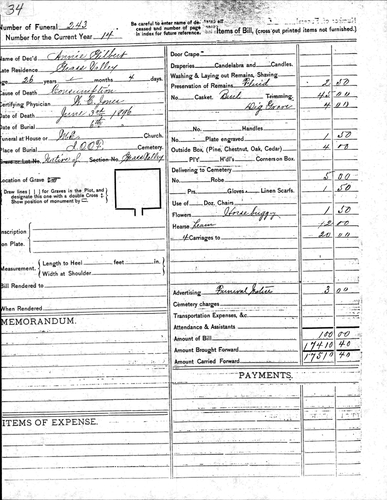 34
Number of Funeral 243
Number for the Current Year 14
Be careful to enter name of deceased and number of page in index for future reference.
Items of Bill, (cross out printed items not furnished.)
Name of Dec'd Annie Gilbert
Late Residence Grass Valley
Age 26 years months 4 days.
Cause of Death Consumption
Certifying Physician W. C. Jones
Date of Death June 3rd 1896
Date of Burial 6th
Funeral at House or M.E. Church.
Place of Burial I.O.O.F. Cemetery.
Grave or Lot No. Section No. Grass Valley
Location of Grave
Draw lines for Graves in the Plot, and designate this one with a double Cross
Show position of monument by
Inscription on Plate.
Measurement. Length to Heel feet in.
Width at Shoulder
Bill Rendered to
When Rendered
MEMORANDUM.
ITEMS OF EXPENSE.
Door Crape
Draperies Candelabra and Candles.
Washing & Laying out Remains, Shaving
Preservation of Remains Fluid 2 50
No. Casket. Trimming. 45 00
Dig Grave 4 00
No. Handles
No. Plate engraved 1 50
Outside Box, (Pine, Chestnut, Oak, Cedar) 4 00
Corners on Box.
Delivering to Cemetery
No. Robe 5 00
No. Pm. Gloves Linen Scarfs. 1 50
Use of Doz. Chairs
Flowers Horse buggy 1 50
Hearse Team 12 00
4 Carriages to 20 00
Advertising Funeral Notice 3 00
Cemetery charges
Transportation Expenses, &c.
Attendance & Assistants
Amount of Bill 100 00
Amount Brought Forward 17410 40
Amount Carried Forward 17510 40
PAYMENTS.